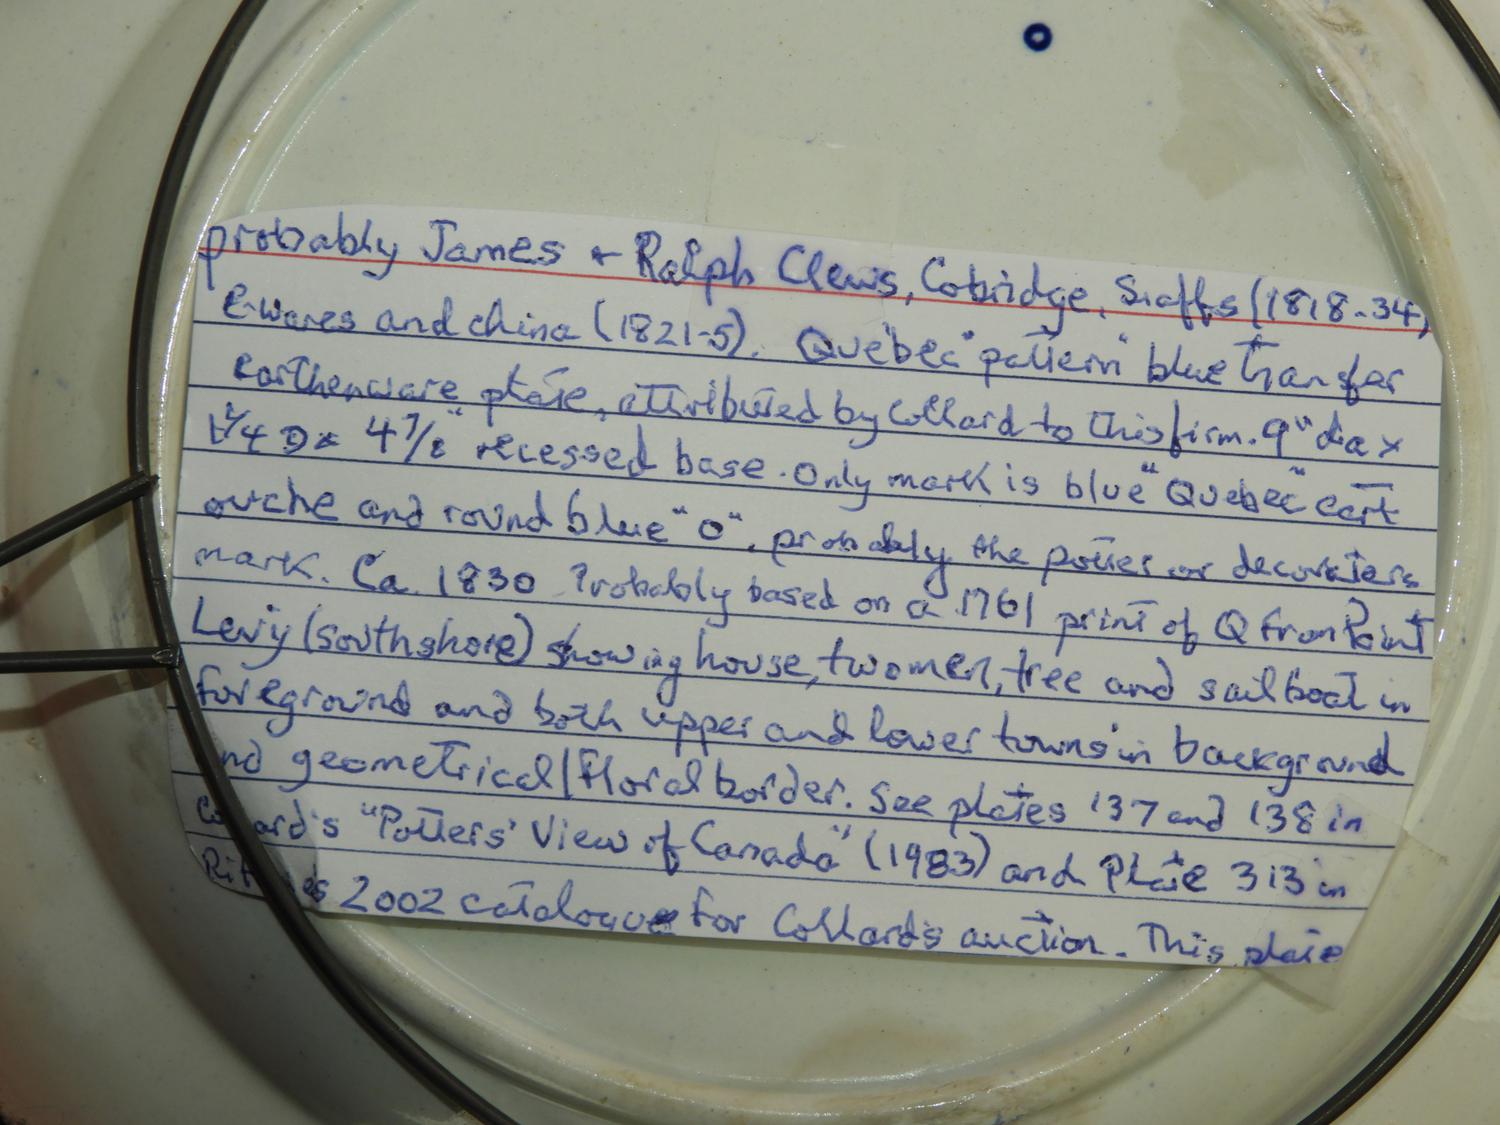 probably James + Ralph Clews, Cobridge, Staffs (1818-34)
E-wares and china (1821-5). Quebec "pattern" blue transfer
earthenware plate, attributed by Collard to this firm. 9" dia x
D x 4 7/8" recessed base. Only mark is blue "Quebec" cart
ouche and round blue "o", probably the potter or decorators
mark. Ca. 1830 Probably based on a 1761 print of Q from Point
Levy (south shore) showing house, two men, tree and sailboat in
foreground and both upper and lower towns in background
nd geometrical/floral border. See plates 137 and 138 in
Co ard's "Potters' View of Canada" (1983) and Plate 313 in
Rit e's 2002 catalogue for Collard's auction. This plate